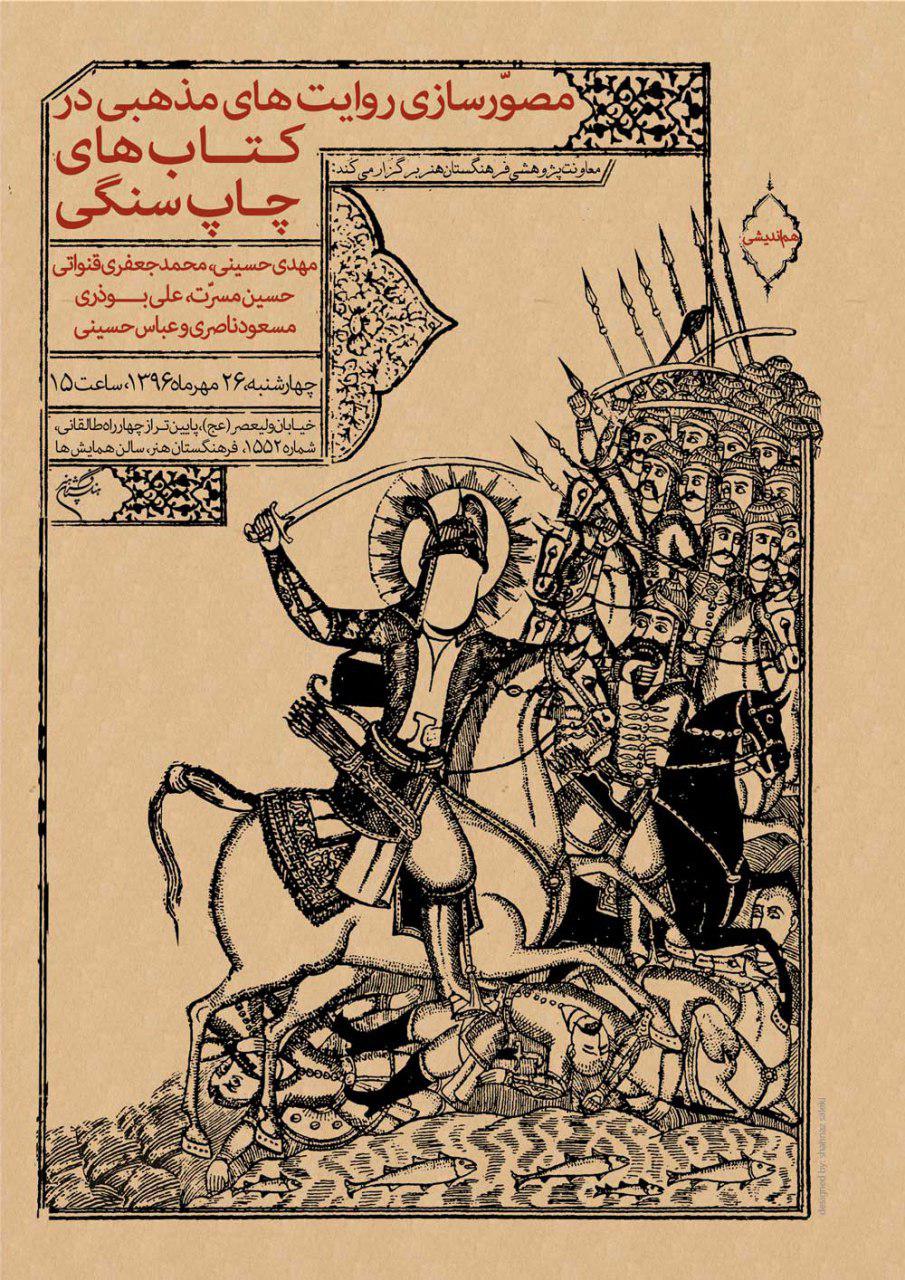 مصوّرسازی روایت های مذهبی در
کتاب های
چاپ سنگی
معاونت پژوهشی فرهنگستان هنر برگزار می کند:
هم‌اندیشی
مهدی حسینی، محمد جعفری قنواتی
حسین مسرّت، علی بوذری
مسعود ناصری و عباس حسینی
چهارشنبه، ۲۶ مهرماه ۱۳۹۶، ساعت ۱۵
خیابان ولیعصر (عج)، پایین تر از چهارراه طالقانی،
شماره ۱۵۵۲، فرهنگستان هنر، سالن همایش ها
فرهنگستان هنر
designed by: shahnaz saleki